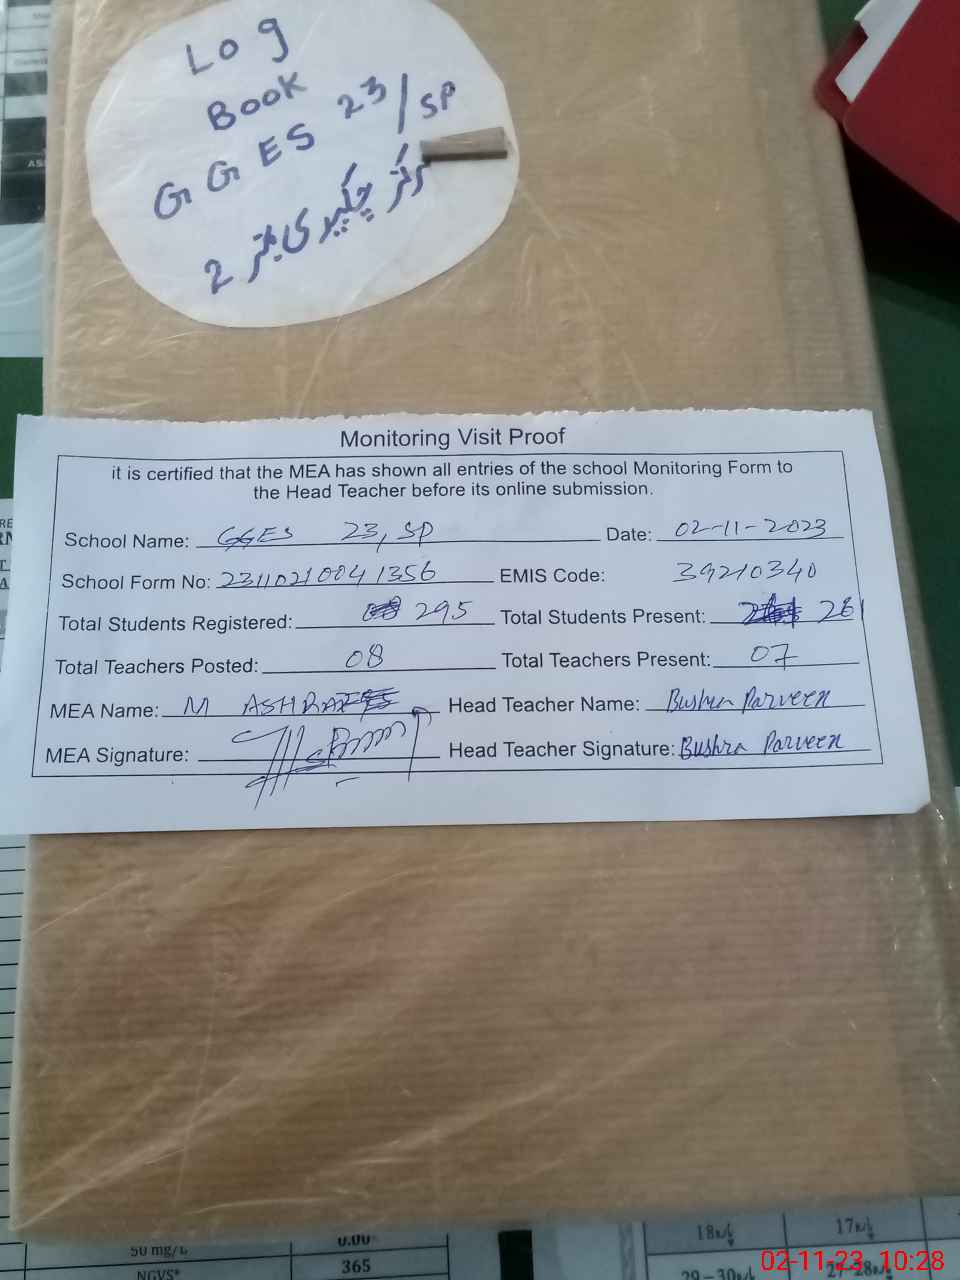 Log
Book
GGES 23/SP
مرکز چکیری نمبر 2
Monitoring Visit Proof
it is certified that the MEA has shown all entries of the school Monitoring Form to
the Head Teacher before its online submission.
School Name: GGES 23, SP Date: 02-11-2023
School Form No: 23110210041356 EMIS Code: 39210340
Total Students Registered: 295 Total Students Present: 261
Total Teachers Posted: 08 Total Teachers Present: 07
MEA Name: M ASHRAF Head Teacher Name: Bushra Parveen
MEA Signature: Head Teacher Signature: Bushra Parveen
50 mg/L 0.00 18 17
NGVS* 365 29-30 27-28
02-11-23, 10:28